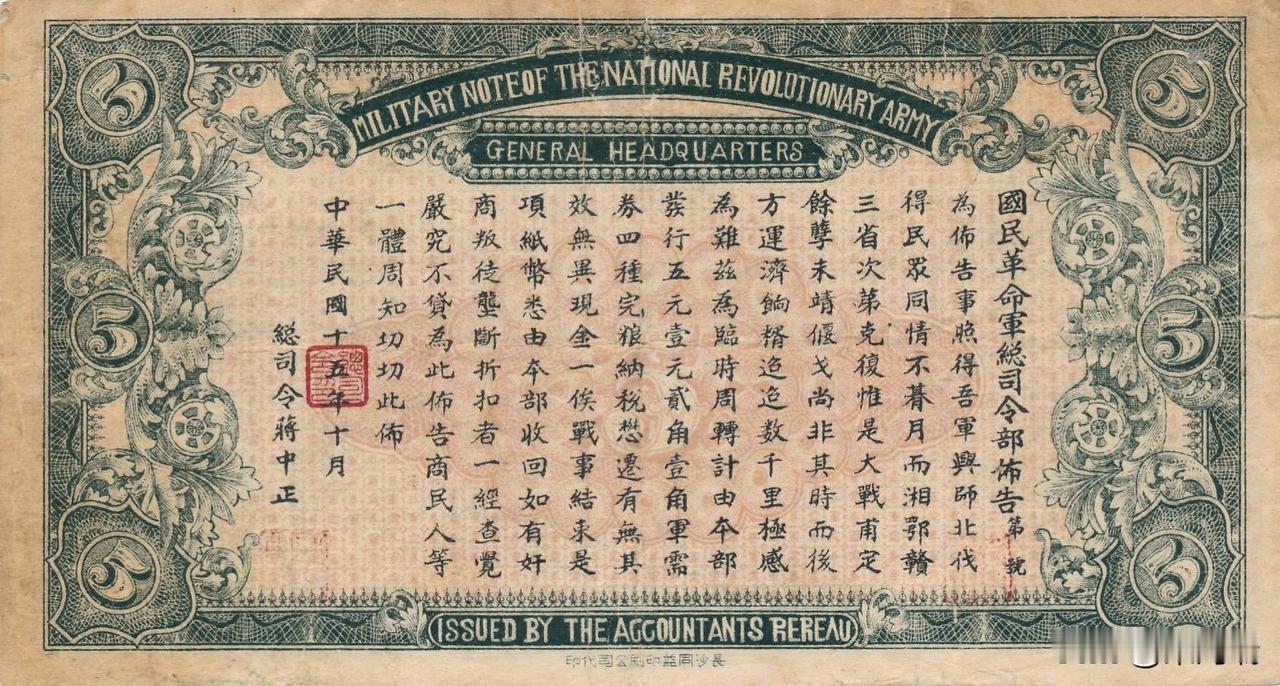 MILITARY NOTE OF THE NATIONAL REVOLUTIONARY ARMY
GENERAL HEADQUARTERS
5
5
5
5
5
5
國民革命軍総司令部佈告 第 號
為佈告事照得吾軍興師北伐
得民眾同情不朞月而湘鄂贛
三省次第克復惟是大戰甫定
餘孽未靖偃戈尚非其時而後
方運濟餉糈迢迢数千里極感
為難茲為臨時周轉計由本部
發行五元壹元貳角壹角軍需
券四種完粮納税懋遷有無其
效無異現金一俟戰事結束是
項紙幣悉由本部收回如有奸
商叛徒壟斷折扣者一經查覺
嚴究不貸為此佈告商民人等
一體周知切切此佈
中華民國十五年十月
総司令蔣中正
ISSUED BY THE ACCOUNTANTS REREAU
印代司公刷印益同沙長